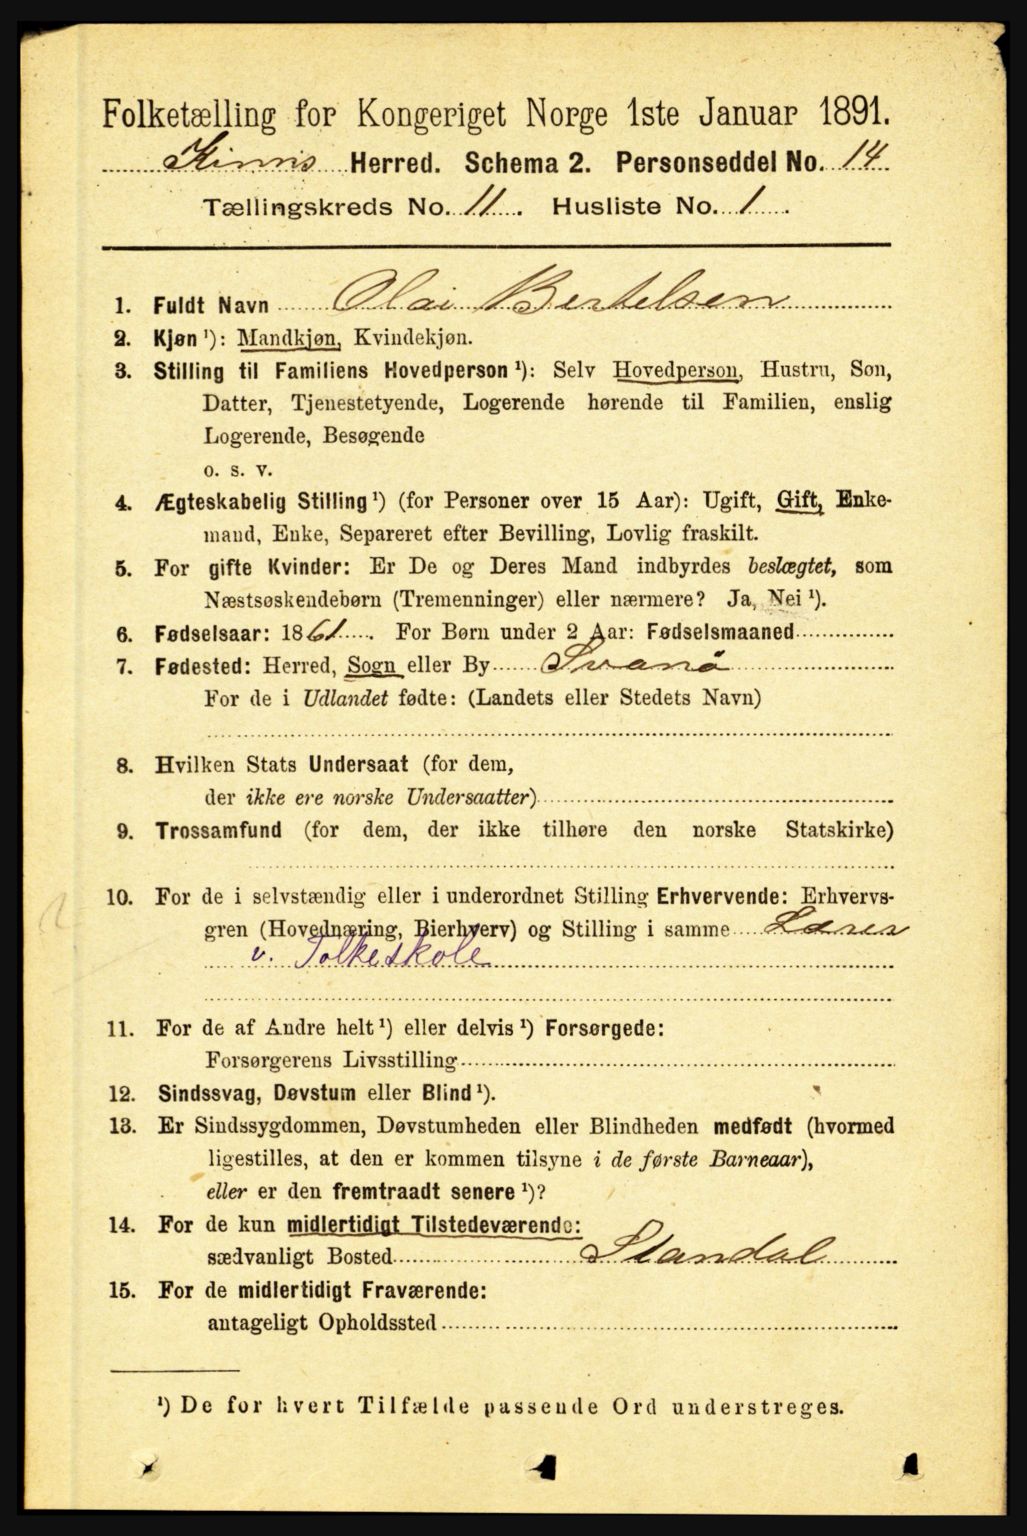 Folketælling for Kongeriget Norge 1ste Januar 1891.
Kinns Herred. Schema 2. Personseddel No. 14
Tællingskreds No. 11. Husliste No. 1.
1. Fuldt Navn Olai Bertelsen
2. Kjøn ¹): Mandkjøn, Kvindekjøn.
3. Stilling til Familiens Hovedperson ¹): Selv Hovedperson, Hustru, Søn,
Datter, Tjenestetyende, Logerende hørende til Familien, enslig
Logerende, Besøgende
o. s. v.
4. Ægteskabelig Stilling ¹) (for Personer over 15 Aar): Ugift, Gift, Enke-
mand, Enke, Separeret efter Bevilling, Lovlig fraskilt.
5. For gifte Kvinder: Er De og Deres Mand indbyrdes beslægtet, som
Næstsøskendebørn (Tremenninger) eller nærmere? Ja, Nei ¹).
6. Fødselsaar: 1861. For Børn under 2 Aar: Fødselsmaaned
7. Fødested: Herred, Sogn eller By Svanø
For de i Udlandet fødte: (Landets eller Stedets Navn)
8. Hvilken Stats Undersaat (for dem,
der ikke ere norske Undersaatter)
9. Trossamfund (for dem, der ikke tilhøre den norske Statskirke)
10. For de i selvstændig eller i underordnet Stilling Erhvervende: Erhvervs-
gren (Hovednæring, Bierhverv) og Stilling i samme Lærer
v. Folkeskole
11. For de af Andre helt ¹) eller delvis ¹) Forsørgede:
Forsørgerens Livsstilling
12. Sindssvag, Døvstum eller Blind ¹).
13. Er Sindssygdommen, Døvstumheden eller Blindheden medfødt (hvormed
ligestilles, at den er kommen tilsyne i de første Barneaar),
eller er den fremtraadt senere ¹)?
14. For de kun midlertidigt Tilstedeværende:
sædvanligt Bosted Standal
15. For de midlertidigt Fraværende:
antageligt Opholdssted
¹) De for hvert Tilfælde passende Ord understreges.